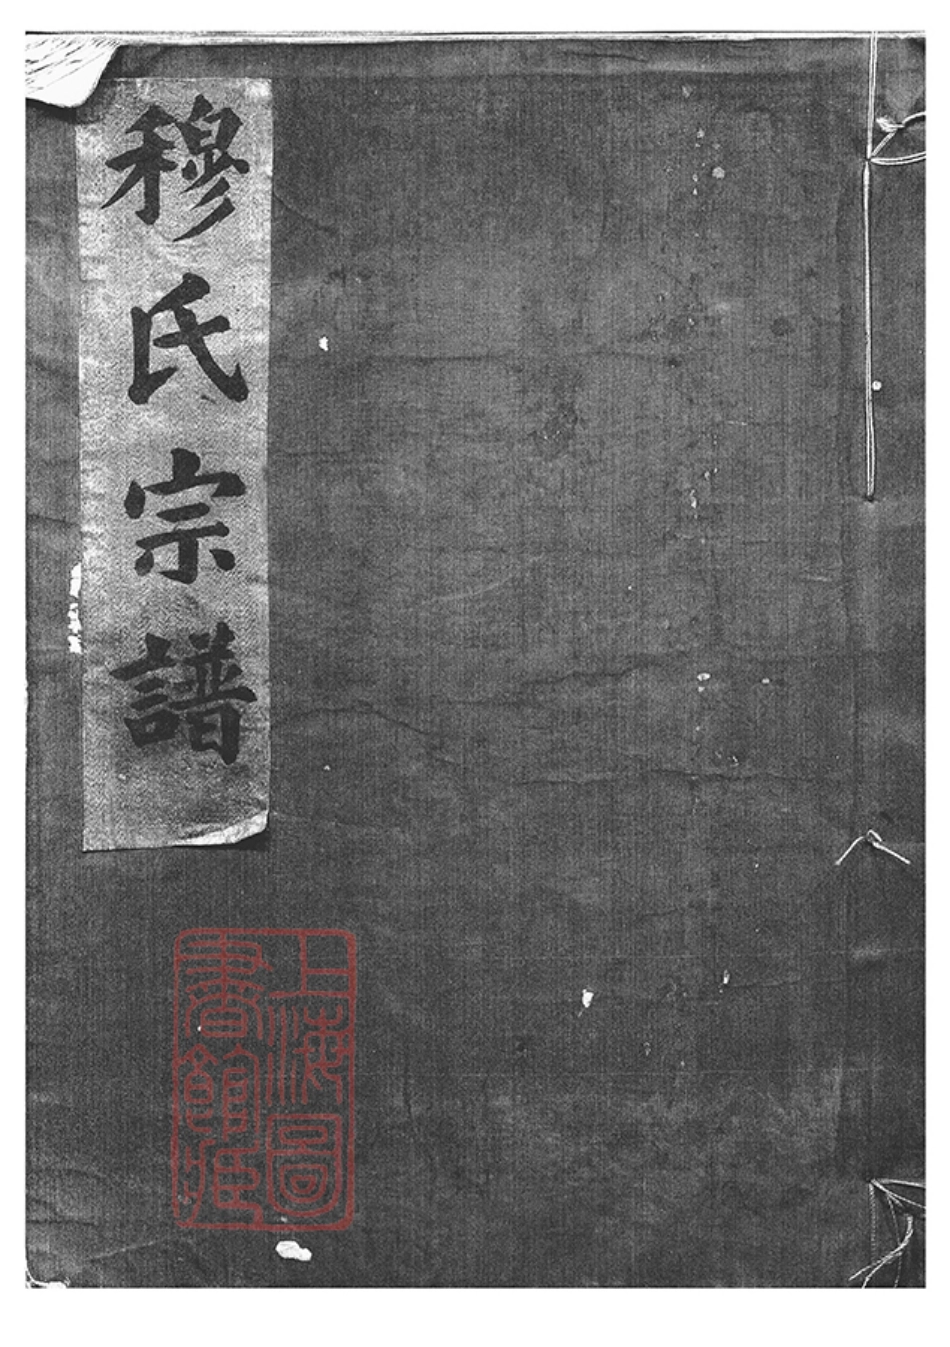 穆氏宗譜
上海圖
書館藏